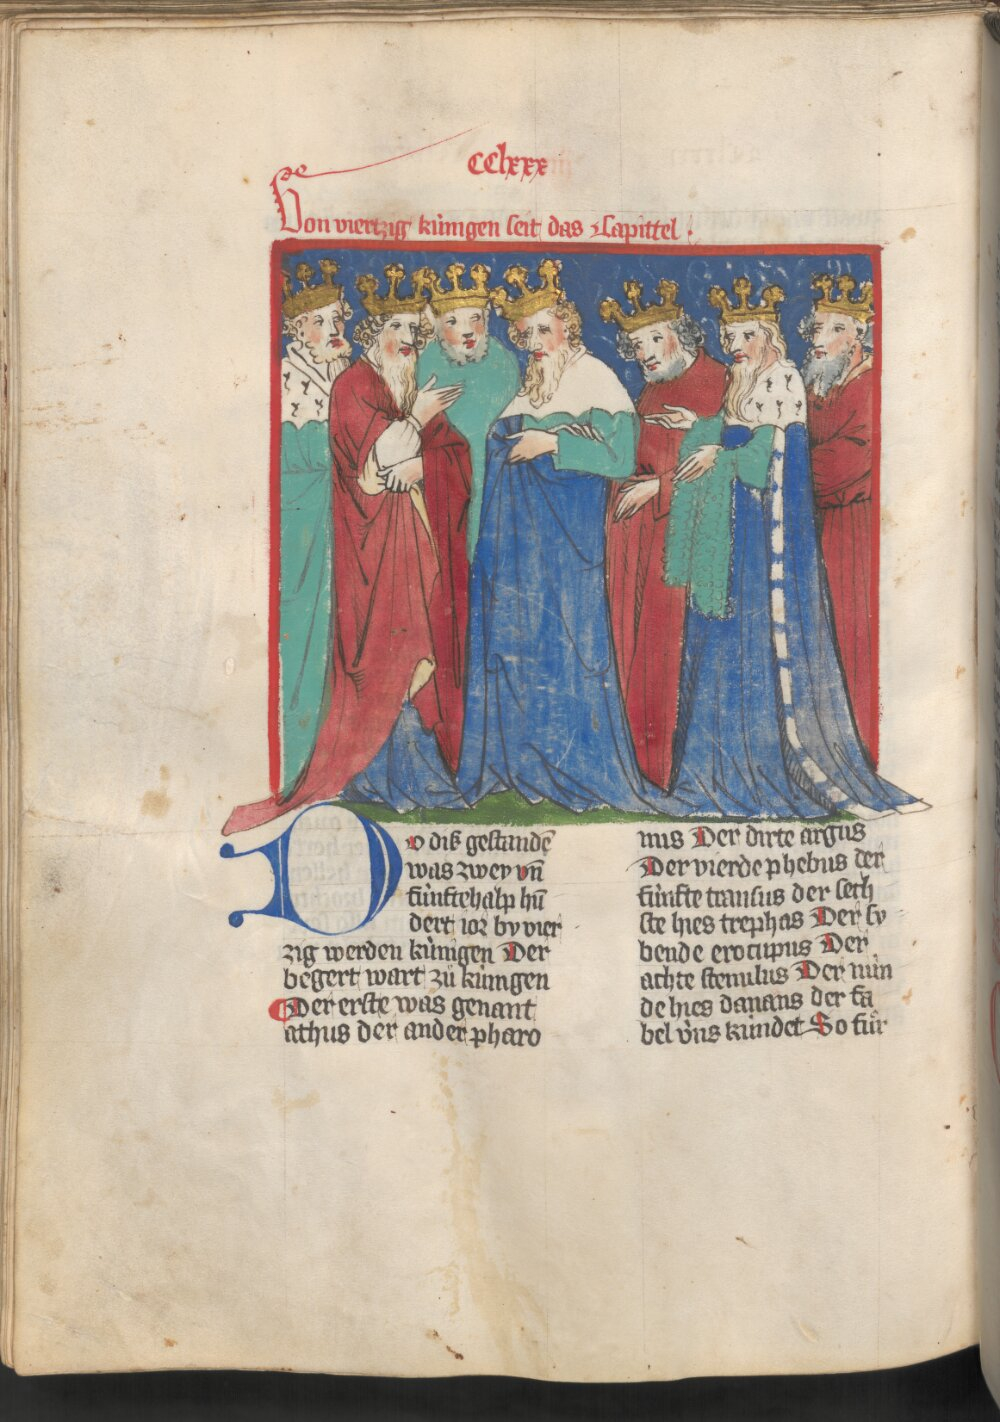 CClxxx
Von viertzig kúnigen seit das Capittel
Do diß gestandē
was zwey vn̄
fúnftehalp hū
dert ior by vier
zig werden kúnigen Der
begert wart zů kúnigen
Der erste was genant
athus der ander pharo
nus Der dirte argus
Der vierde phebus der
fúnfte transus der sech
ste hies trephas Der sy
bende erocupus Der
achte stenulus Der nún
de hies danans der fa
bel vns kúndet So fúr